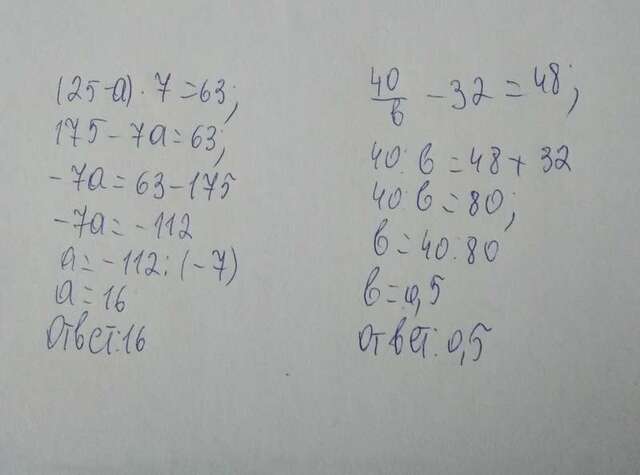 (25-а)·7=63;
175-7а=63;
-7а=63-175
-7а=-112
а=-112:(-7)
а=16
Ответ:16
40/в -32=48;
40:в=48+32
40:в=80;
в=40:80
в=0,5
Ответ:0,5